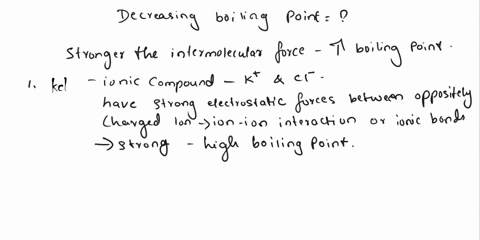 Decreasing boiling Point = ?
Stronger the intermolecular force - ↑ boiling Point.
1. kcl - ionic Compound - K⁺ & Cl⁻.
have strong electrostatic forces between oppositely
Charged Ion → ion-ion interaction or ionic bonds
→ strong - high boiling Point.